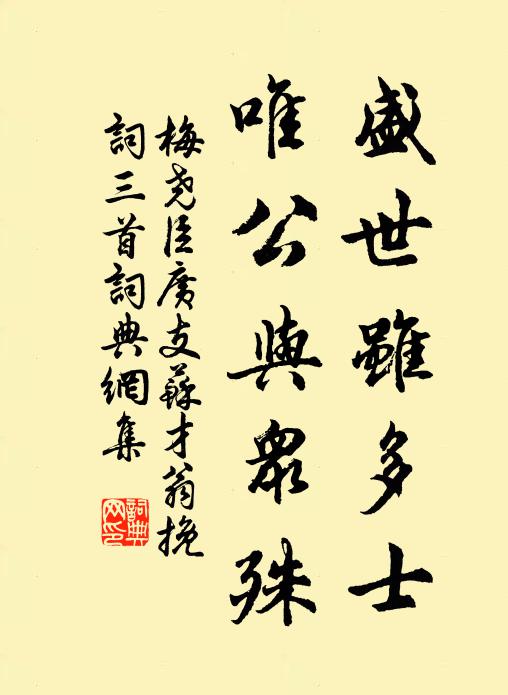 盛世雖多士
唯公與眾殊
梅堯臣度支蘇才翁挽
詞三首詞典網集
詞典
网印